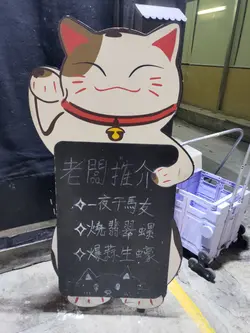 老闆推介
✧一夜干馬友
✧燒翡翠螺
✧爆蒸生蠔